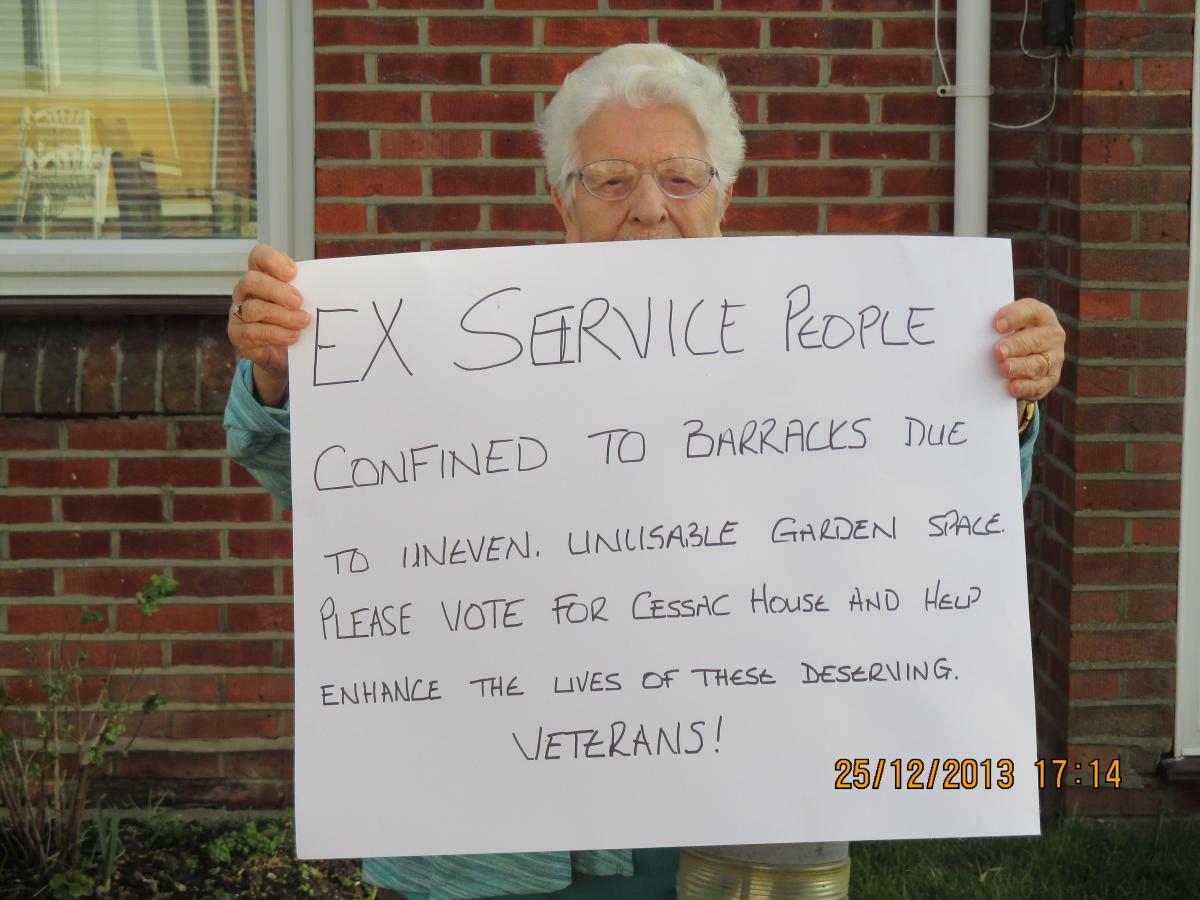 EX SERVICE PEOPLE
CONFINED TO BARRACKS DUE
TO UNEVEN. UNUSABLE GARDEN SPACE.
PLEASE VOTE FOR CESSAC HOUSE AND HELP
ENHANCE THE LIVES OF THESE DESERVING.
VETERANS!
25/12/2013 17:14